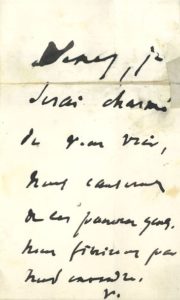 Venez, je
serai charmé
de vous voir,
Nous causerons
de ces pauvres gens.
Nous finirons par
nous entendre.
V.